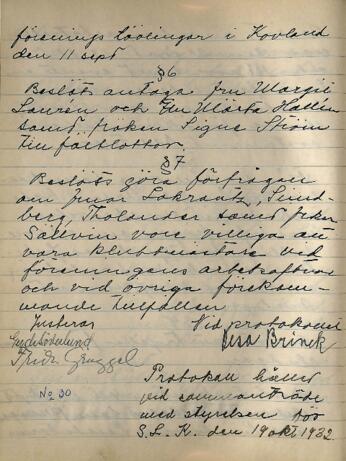 förenings tävlingar i Kovland
den 11 sept
§6
Beslöts antaga fru Margit
Laurén och fru Märta Hallén
samt fröken Signe Ström
till
§7
Beslöts göra förfrågan
om fruar Lokrantz, Sund-
berg, Tholander samt frken
Sällvin vore villiga att
vara klubbmästare vid
föreningens
och vid övriga förekom-
mande tillfällen
Justeras Vid protokollet
Brinck
No 30
Protokoll hållet
vid sammanträde
med styrelsen för
S.L.K. den 19 okt 1932